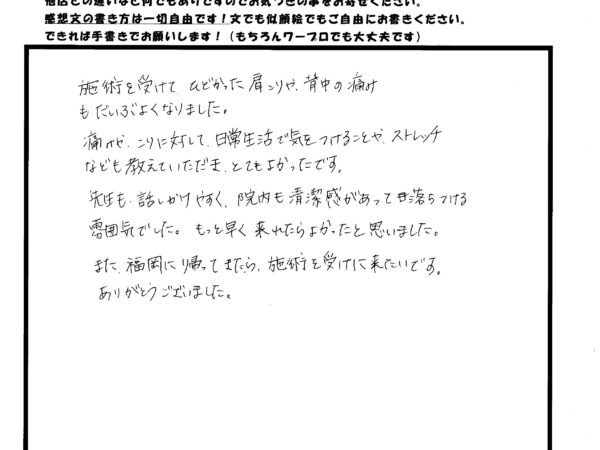 他店との違いなど何でもありですのでお気づきの事をお寄せください。
感想文の書き方は一切自由です！文でも似顔絵でもご自由にお書きください。
できれば手書きでお願いします！（もちろんワープロでも大丈夫です）
施術を受けて、ひどかった肩こりや、背中の痛み
もだいぶよくなりました。
痛みや、こりに対して、日常生活で気をつけることや、ストレッチ
なども教えていただき、とてもよかったです。
先生も、話しかけやすく、院内も清潔感があって落ちつける
雰囲気でした。もっと早く来れたらよかったと思いました。
また、福岡に帰ってきたら、施術を受けに来たいです。
ありがとうございました。